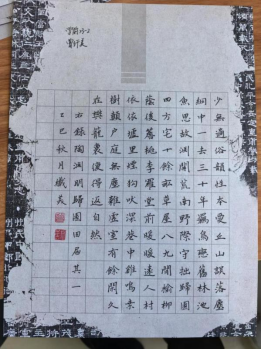 少無適俗韻性本愛丘山誤落塵
網中一去三十年羈鳥戀舊林池
魚思故淵開荒南野際守拙歸園
田方宅十餘畝草屋八九間榆柳
蔭後簷桃李羅堂前曖曖遠人村
依依墟里煙狗吠深巷中雞鳴桑
樹顛户庭無塵雜虛室有餘閒久
在樊籠裏復得返自然
右錄陶淵明歸園田居其一
乙巳秋月